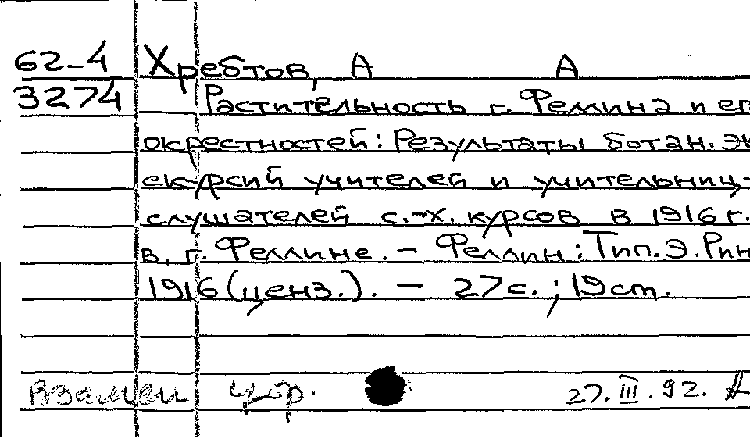 62-4 Хребтов, А А
3274 Растительность г. Феллина и ег
окрестностей: Результаты ботан. эк
скурсий учителей и учительниц-
слушателей с.-х. курсов в 1916 г.
в г. Феллине. – Феллин: Тип. Э. Рин
1916 (ценз.). – 27 с.; 19 cm.
взамен утр. 27.III.92.